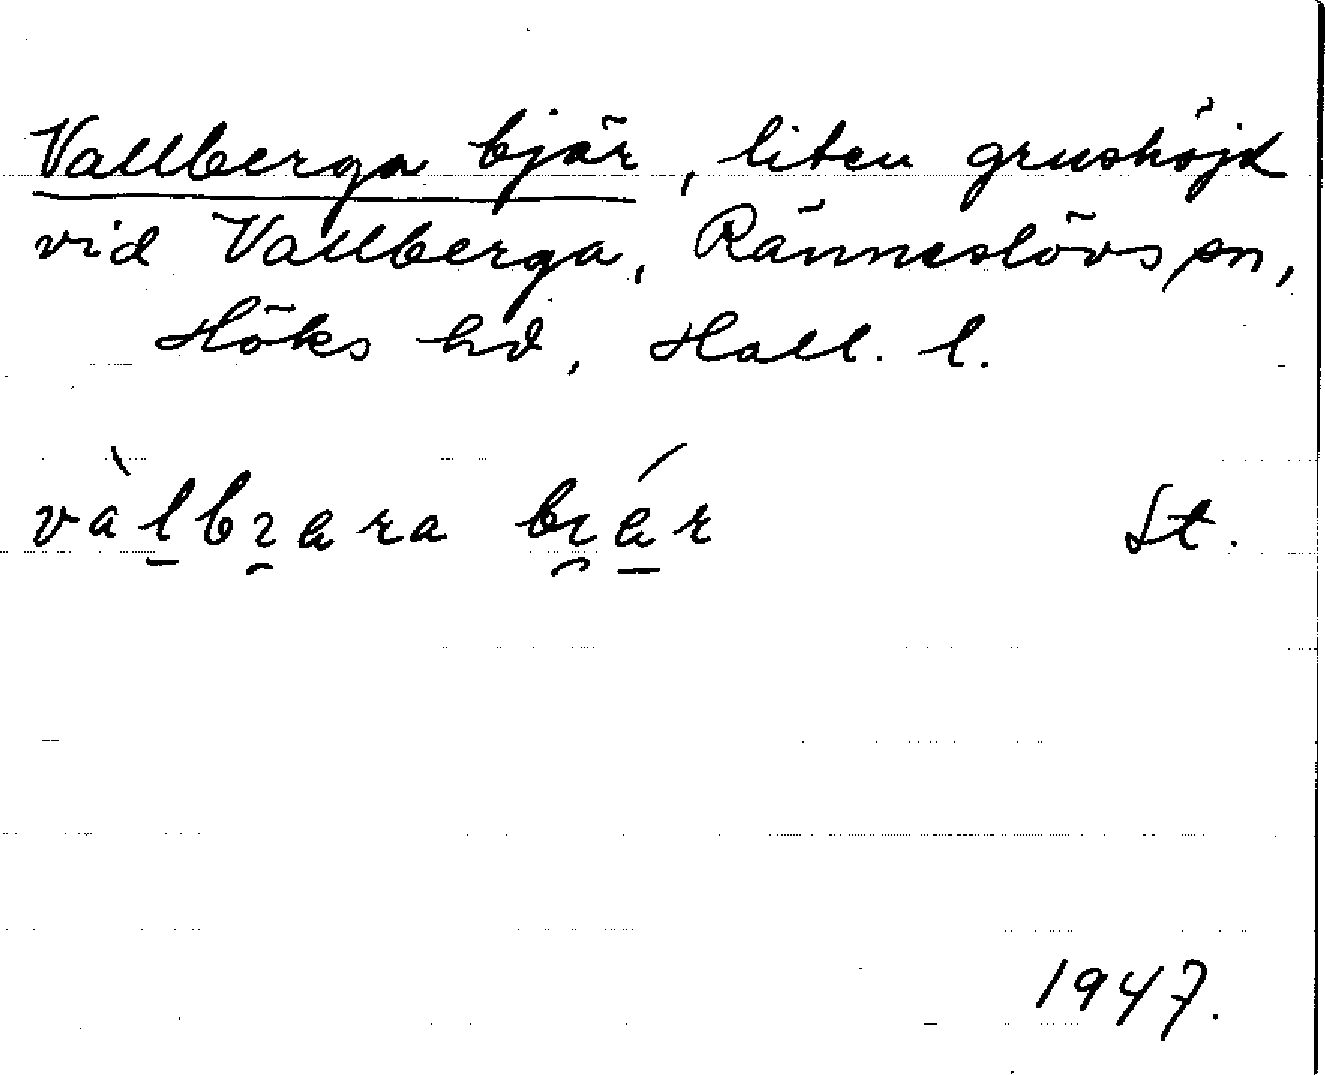 Vallberga bjär, liten grushöjd
vid Vallberga, Ränneslövs sn,
Höks hd, Hall. l.
vàl̠bɿ̯ara bɿ̯á̠r St.
1947.